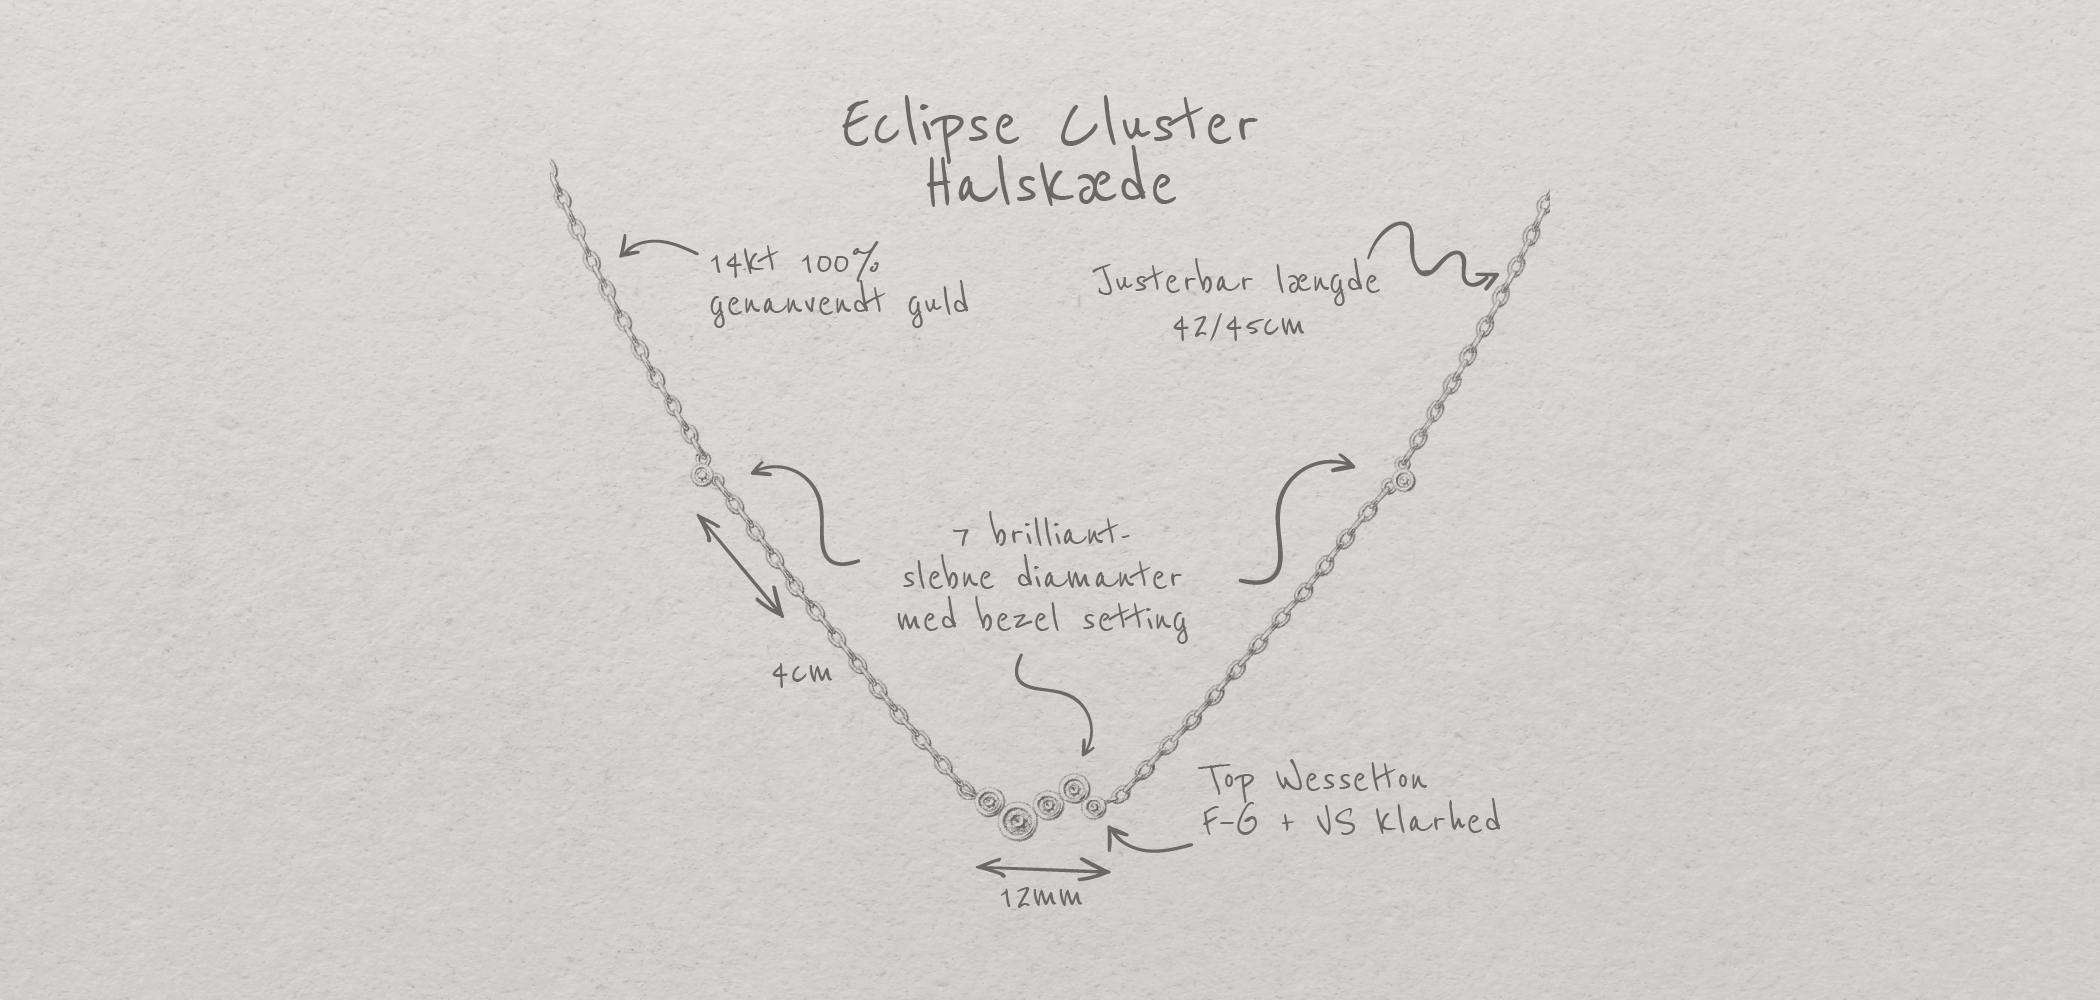 Eclipse Cluster
Halskæde
14kt 100%
genanvendt guld
Justerbar længde
42/45cm
7 brilliant-
slebne diamanter
med bezel setting
4cm
Top Wesselton
F-G + VS Klarhed
12mm